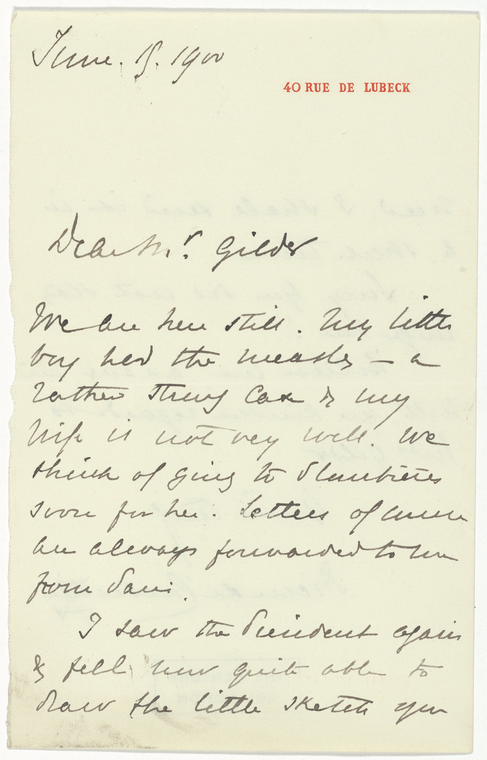 June. 15. 1900
40 RUE DE LUBECK
Dear Mr. Gilder
We are here still. My little
boy had the measles – a
rather strong case & my
wife is not very well. We
think of going to Plombières
soon for her. Letters of course
are always forwarded to me
from Paris.
I saw the President again
& feel now quite able to
draw the little sketch you